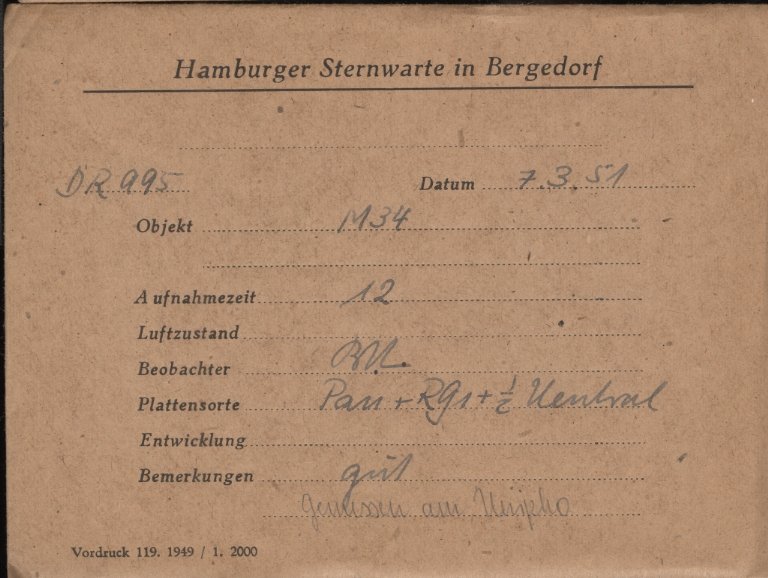 Hamburger Sternwarte in Bergedorf
DR 995 Datum 7.3.51
Objekt M34
Aufnahmezeit 12
Luftzustand
Beobachter
Plattensorte Pan + RG1 + ½ Neutral
Entwicklung
Bemerkungen gut
Gemessen am Irispho
Vordruck 119. 1949 / 1. 2000